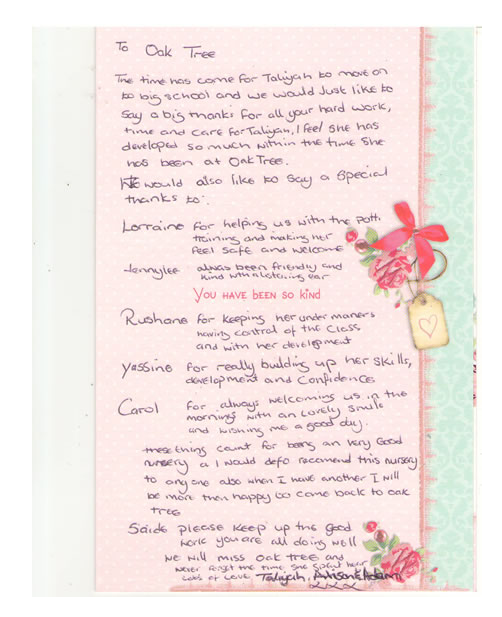 To Oak Tree
The time has come for Taliyah to move on
to big school and we would Just like to
Say a big thanks for all your hard work,
time and care for Taliyah, I feel she has
developed so much within the time she
has been at Oak Tree.
We would also like to say a special
thanks to:
Lorraine for helping us with the potti
training and making her
feel safe and welcome
Jennylee always been friendly and
kind with a listening ear
YOU HAVE BEEN SO KIND
Rushane for keeping her under maners
having control of the class
and with her development
Yassine for really building up her skills,
development and confidence
Carol for always welcoming us in the
mornings with an lovely smile
and wishing me a good day.
these thing count for being an very Good
nursery a I would defo recomend this nursery
to anyone also when I have another I will
be more then happy to come back to oak
tree
Saide please keep up the good
work you are all doing well
We will miss Oak Tree and
never forget the time she spent here
Lots of Love Taliyah,
xxx